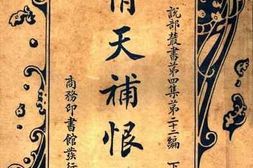 說部叢書第四集第二十二編 下
情天補恨
商務印書館發行